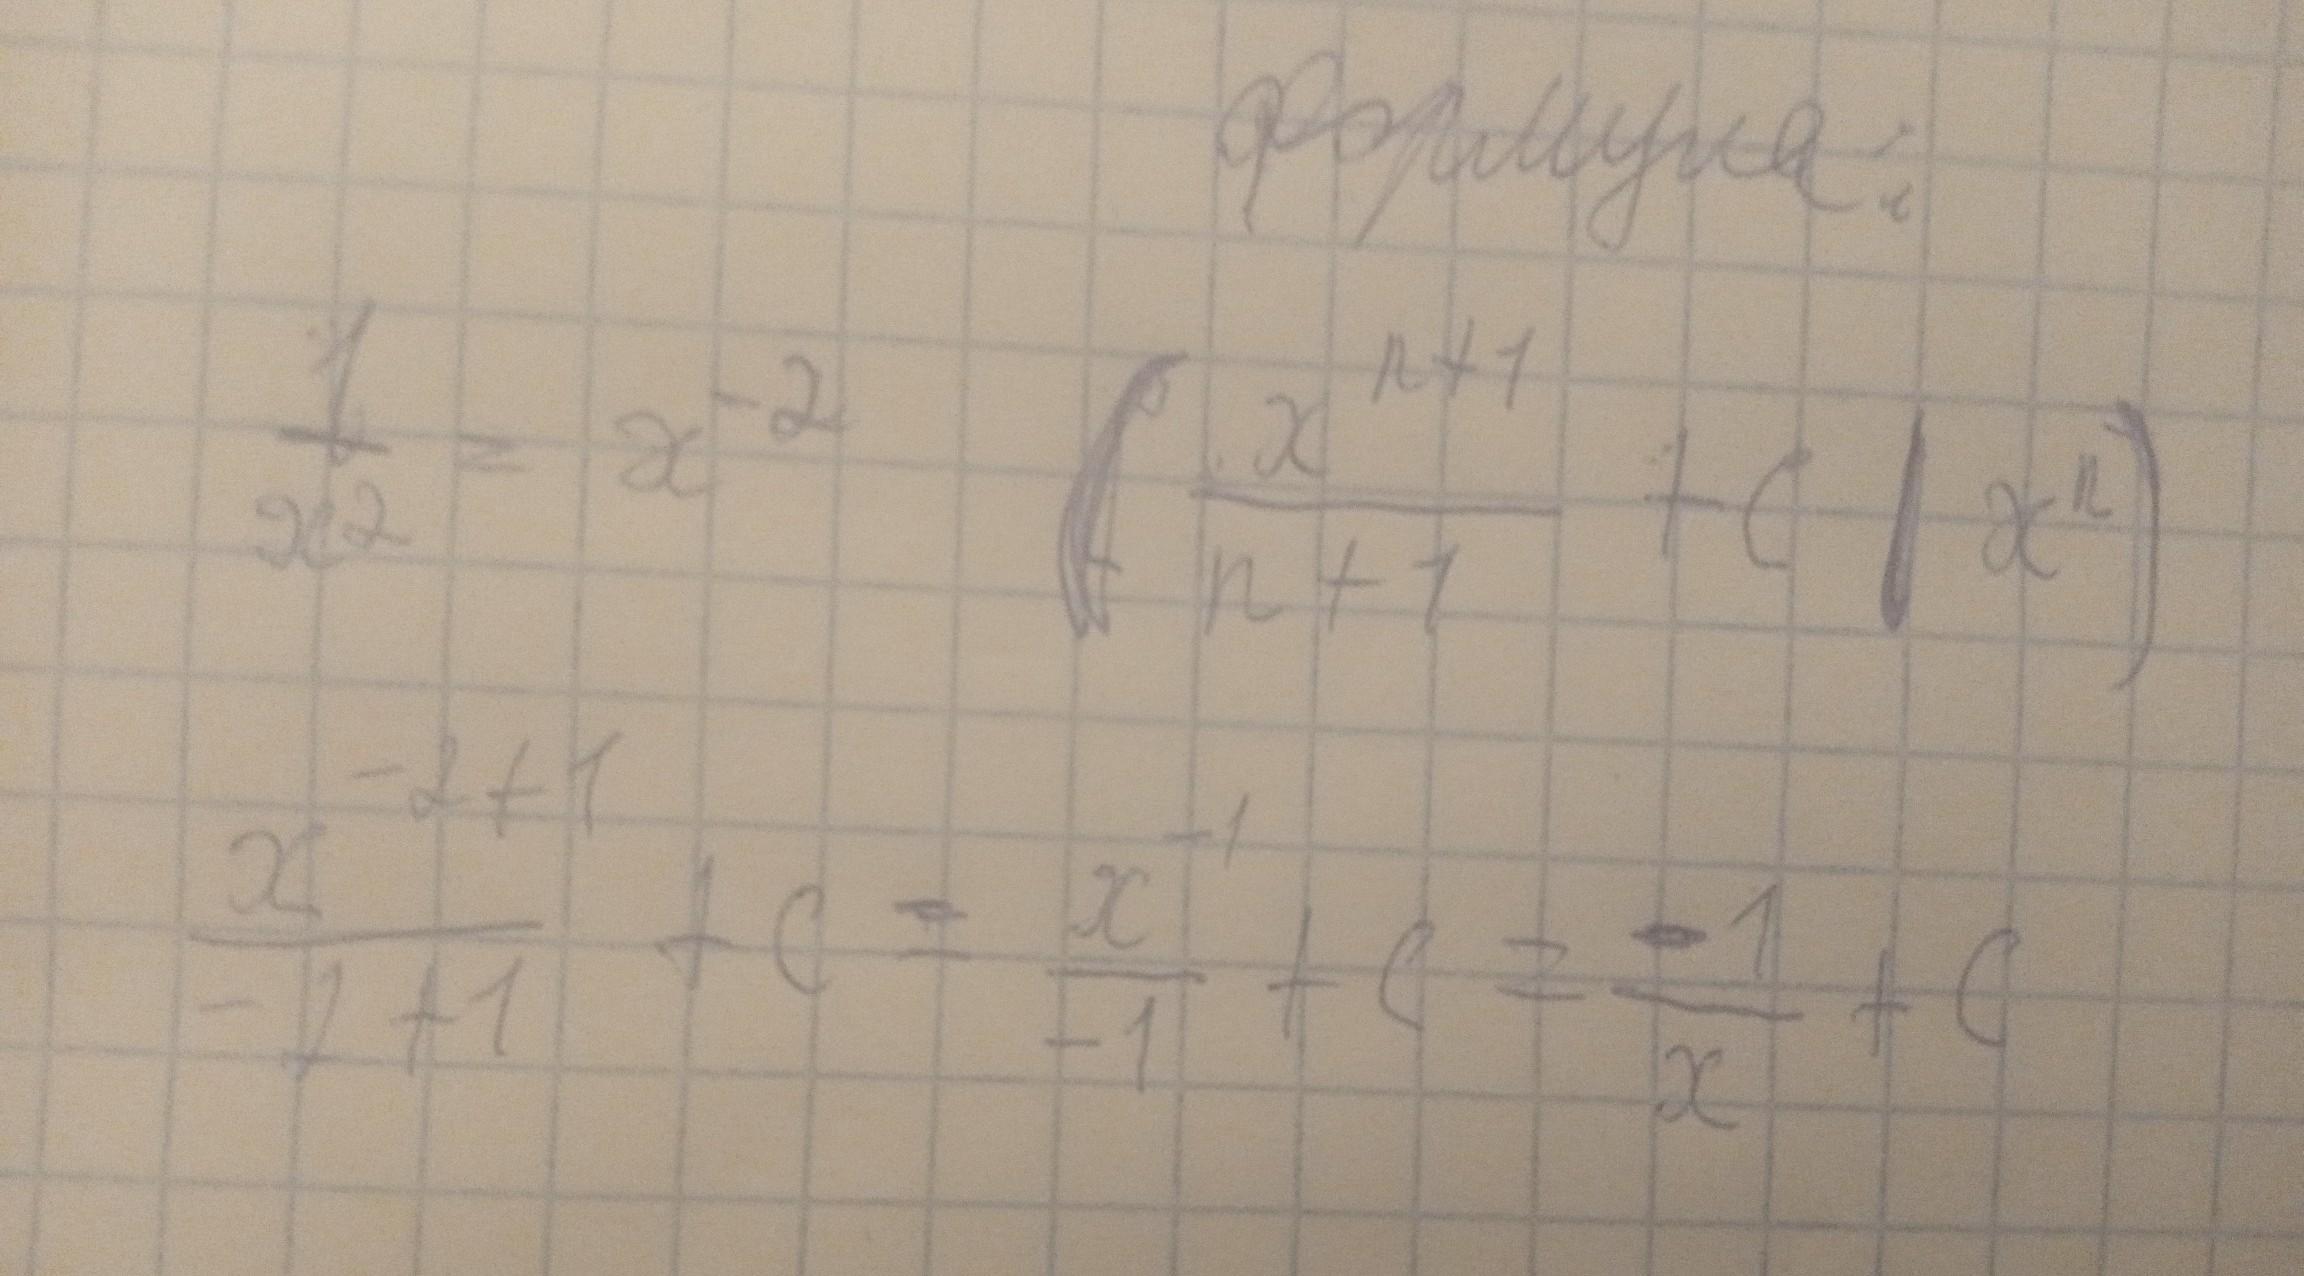 формула:
1/x² = x⁻² ( xⁿ⁺¹/n+1 + C | xⁿ )
x⁻²⁺¹/-1+1 + C = x⁻¹/-1 + C = -1/x + C